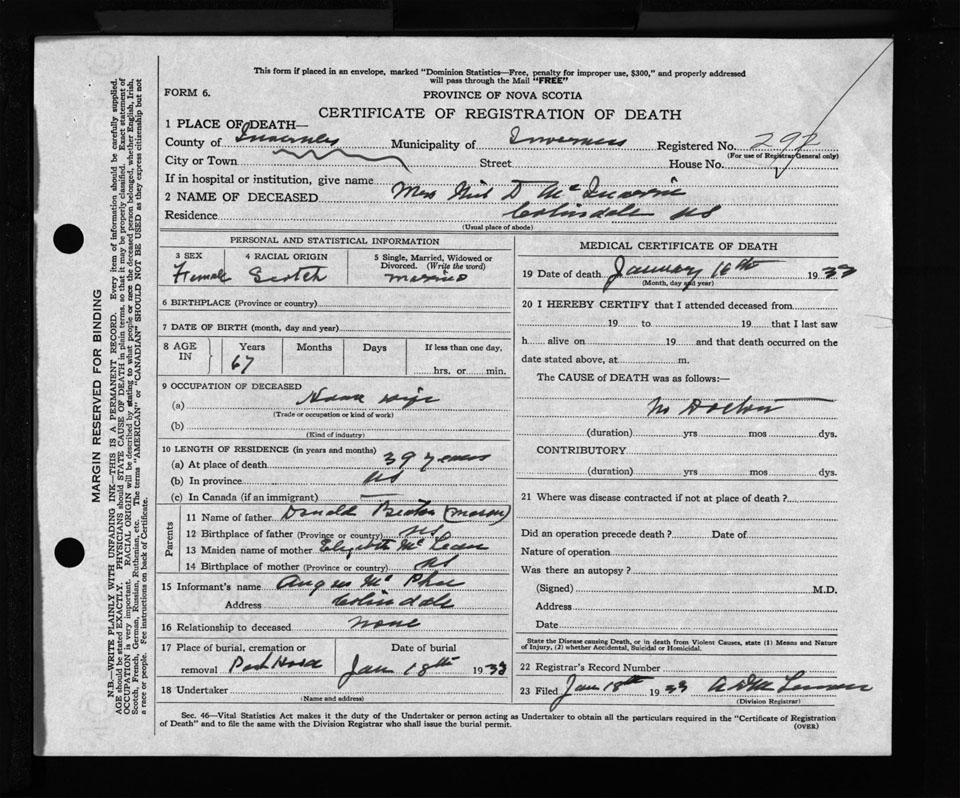 This form if placed in an envelope, marked "Dominion Statistics—Free, penalty for improper use, $300," and properly addressed
will pass through the Mail "FREE"
FORM 6.
PROVINCE OF NOVA SCOTIA
CERTIFICATE OF REGISTRATION OF DEATH
1 PLACE OF DEATH—
County of Inverness Municipality of Inverness Registered No. 292
(For use of Registrar General only)
City or Town Street House No.
If in hospital or institution, give name
2 NAME OF DECEASED Mrs D Mc
Residence Colindale NS
(Usual place of abode)
PERSONAL AND STATISTICAL INFORMATION
3 SEX 4 RACIAL ORIGIN 5 Single, Married, Widowed or Divorced. (Write the word)
Female Scotch Married
6 BIRTHPLACE (Province or country)
7 DATE OF BIRTH (month, day and year)
8 AGE IN Years Months Days If less than one day,
67 hrs. or min.
9 OCCUPATION OF DECEASED
(a) House wife
(Trade or occupation or kind of work)
(b)
(Kind of industry)
10 LENGTH OF RESIDENCE (in years and months)
(a) At place of death 39 years
(b) In province NS
(c) In Canada (if an immigrant)
Parents
11 Name of father Donald Beaton (mason)
12 Birthplace of father (Province or country) NS
13 Maiden name of mother Elizabeth McLean
14 Birthplace of mother (Province or country) NS
15 Informant's name Angus McPhee
Address Colindale
16 Relationship to deceased none
17 Place of burial, cremation or Date of burial
removal Port Hood Jan 18th 1933
18 Undertaker
(Name and address)
MEDICAL CERTIFICATE OF DEATH
19 Date of death January 16th 1933
(Month, day and year)
20 I HEREBY CERTIFY that I attended deceased from
19 to 19 that I last saw
h alive on 19 and that death occurred on the
date stated above, at m.
The CAUSE of DEATH was as follows:—
no Doctor
(duration) yrs mos dys.
CONTRIBUTORY
(duration) yrs mos dys.
21 Where was disease contracted if not at place of death?
Did an operation precede death? Date of
Nature of operation
Was there an autopsy?
(Signed) M.D.
Address
Date
State the Disease causing Death, or in death from Violent Causes, state (1) Means and Nature
of Injury, (2) whether Accidental, Suicidal or Homicidal.
22 Registrar's Record Number
23 Filed Jan 18th 1933
(Division Registrar)
Sec. 46—Vital Statistics Act makes it the duty of the Undertaker or person acting as Undertaker to obtain all the particulars required in the "Certificate of Registration
of Death" and to file the same with the Division Registrar who shall issue the burial permit.
(OVER)
MARGIN RESERVED FOR BINDING
N.B.—WRITE PLAINLY WITH UNFADING INK—THIS IS A PERMANENT RECORD. Every item of information should be carefully supplied.
AGE should be stated EXACTLY. PHYSICIANS should STATE CAUSE OF DEATH in plain terms, so that it may be properly classified. Exact statement of
OCCUPATION is very important. RACIAL ORIGIN will be described by stating to what people or race the deceased person belonged, whether English, Irish,
Scotch, French, German, Russian, Ruthenian, etc. The terms "AMERICAN" or "CANADIAN" SHOULD NOT BE USED as they express citizenship but not
a race or people. Fee instructions on back of Certificate.